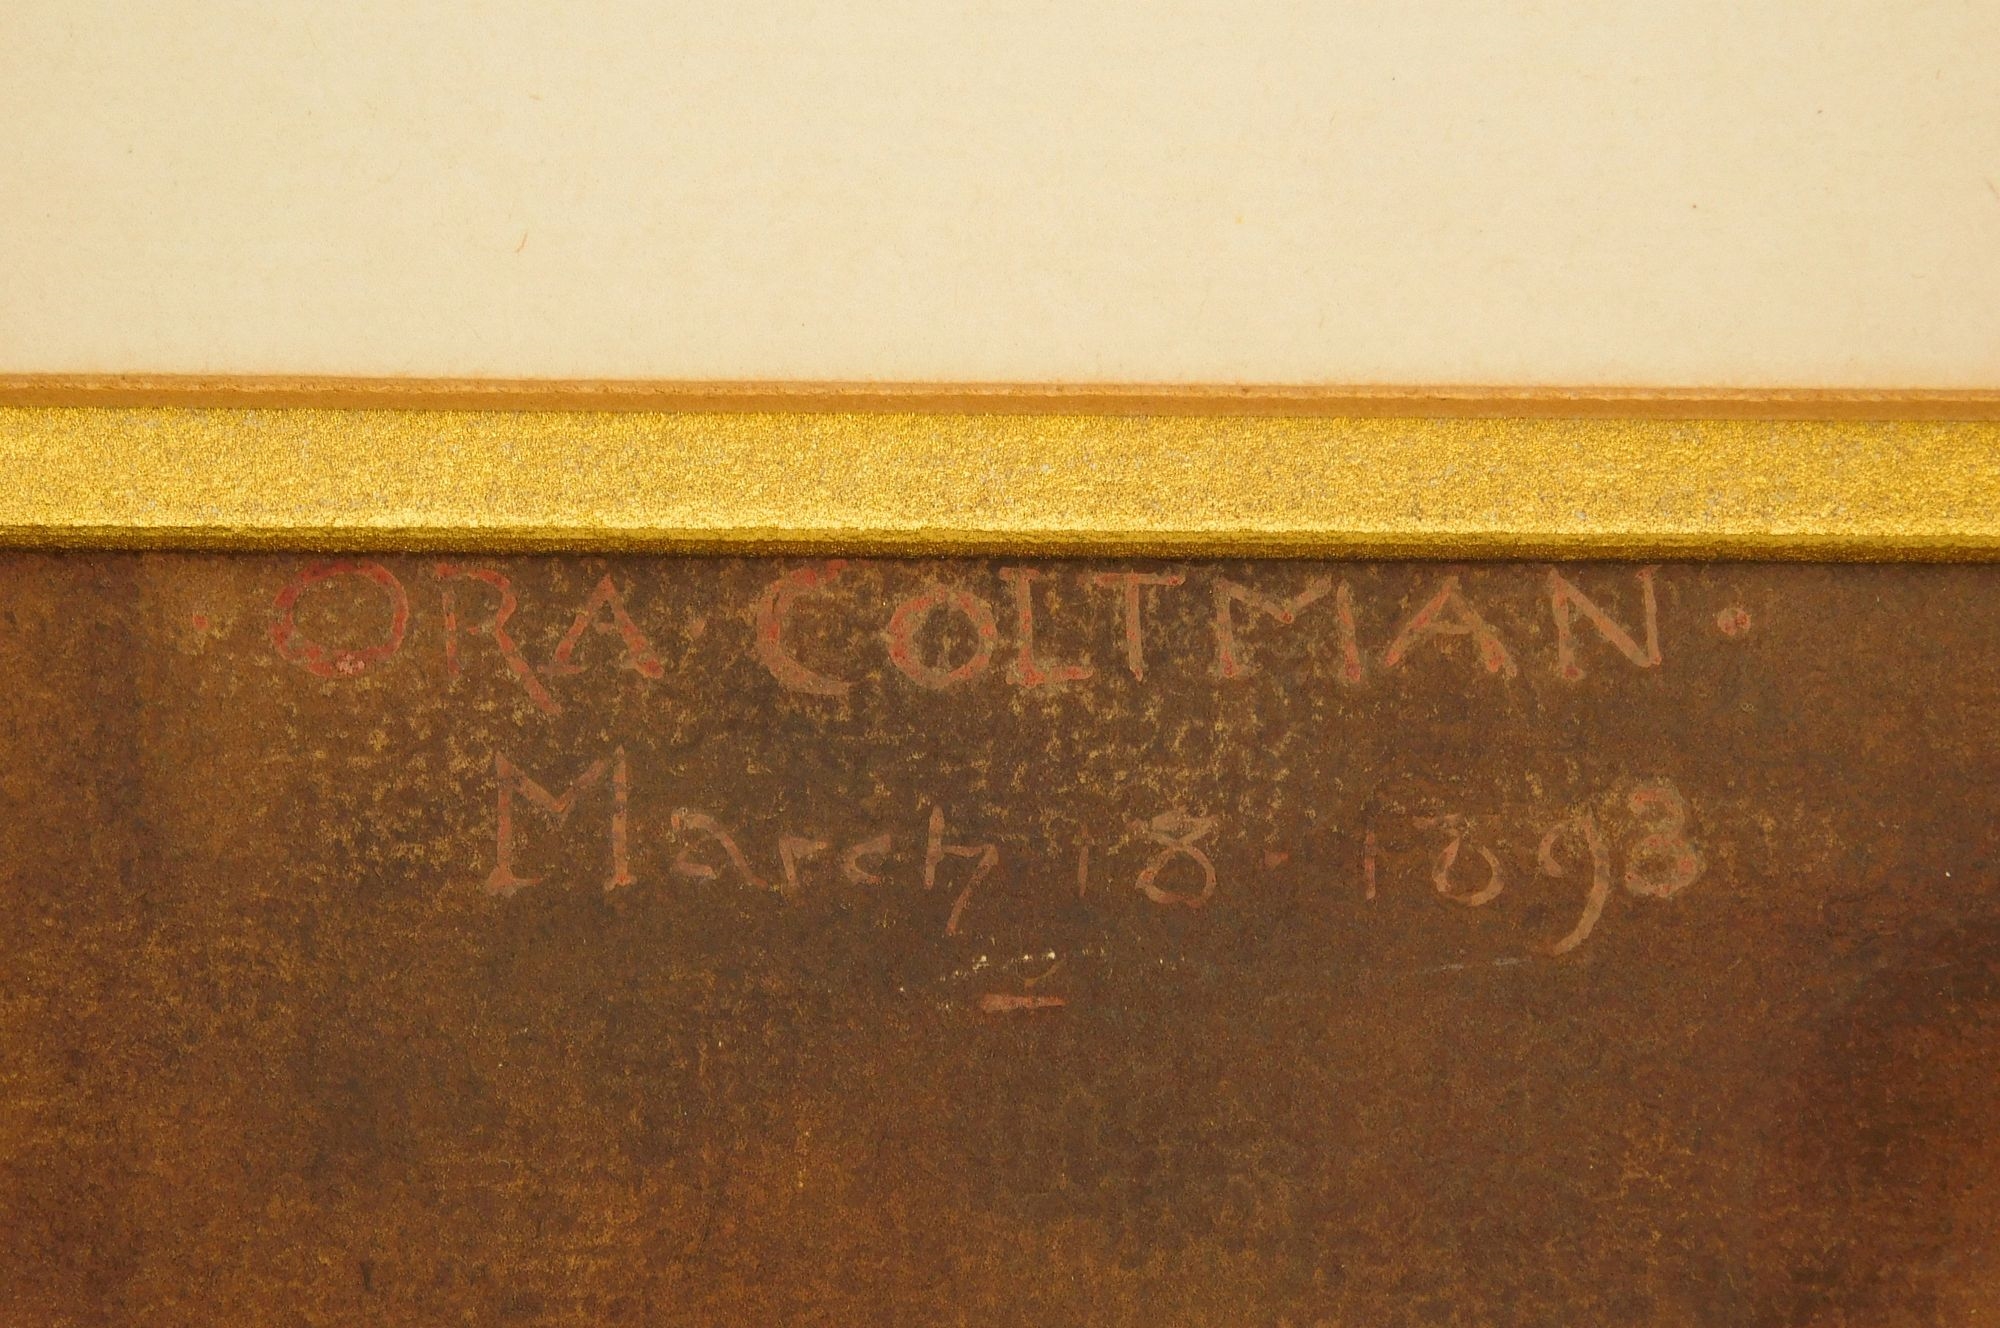 · ORA · COLTMAN ·
March 18 · 1898